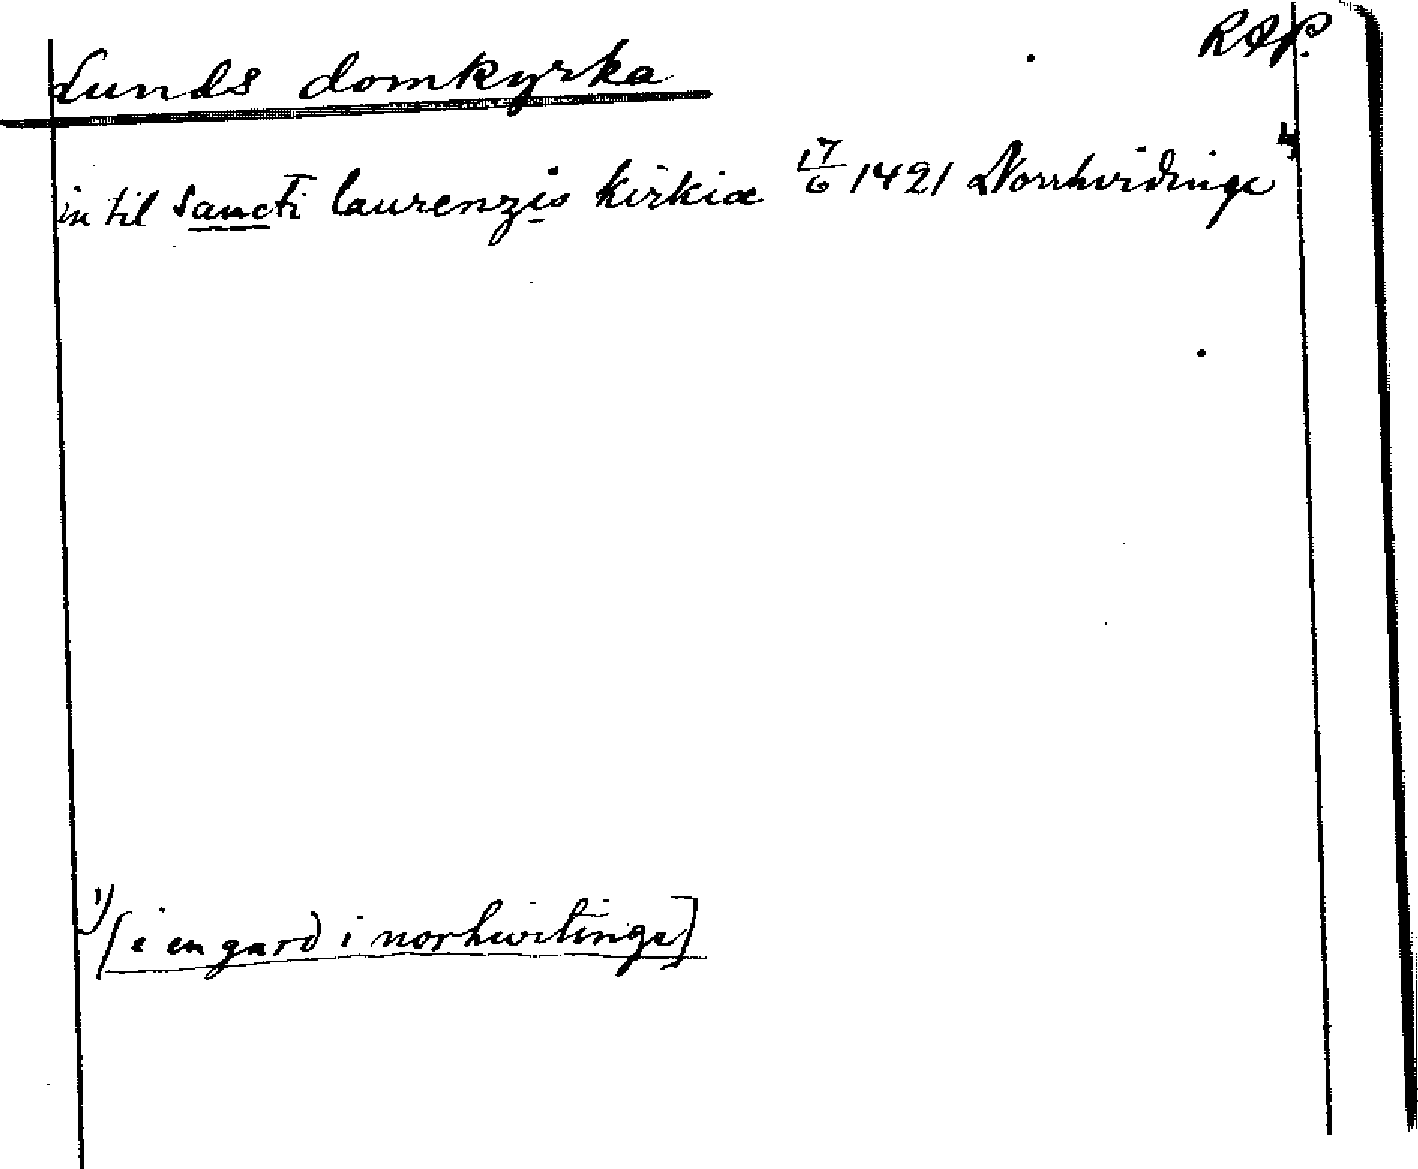 Lunds domkyrka RAP.
in til sancti laurenzis kirkiæ 17/6 1421 Norrhvidinge
1) [i en gard i norhwitinge]